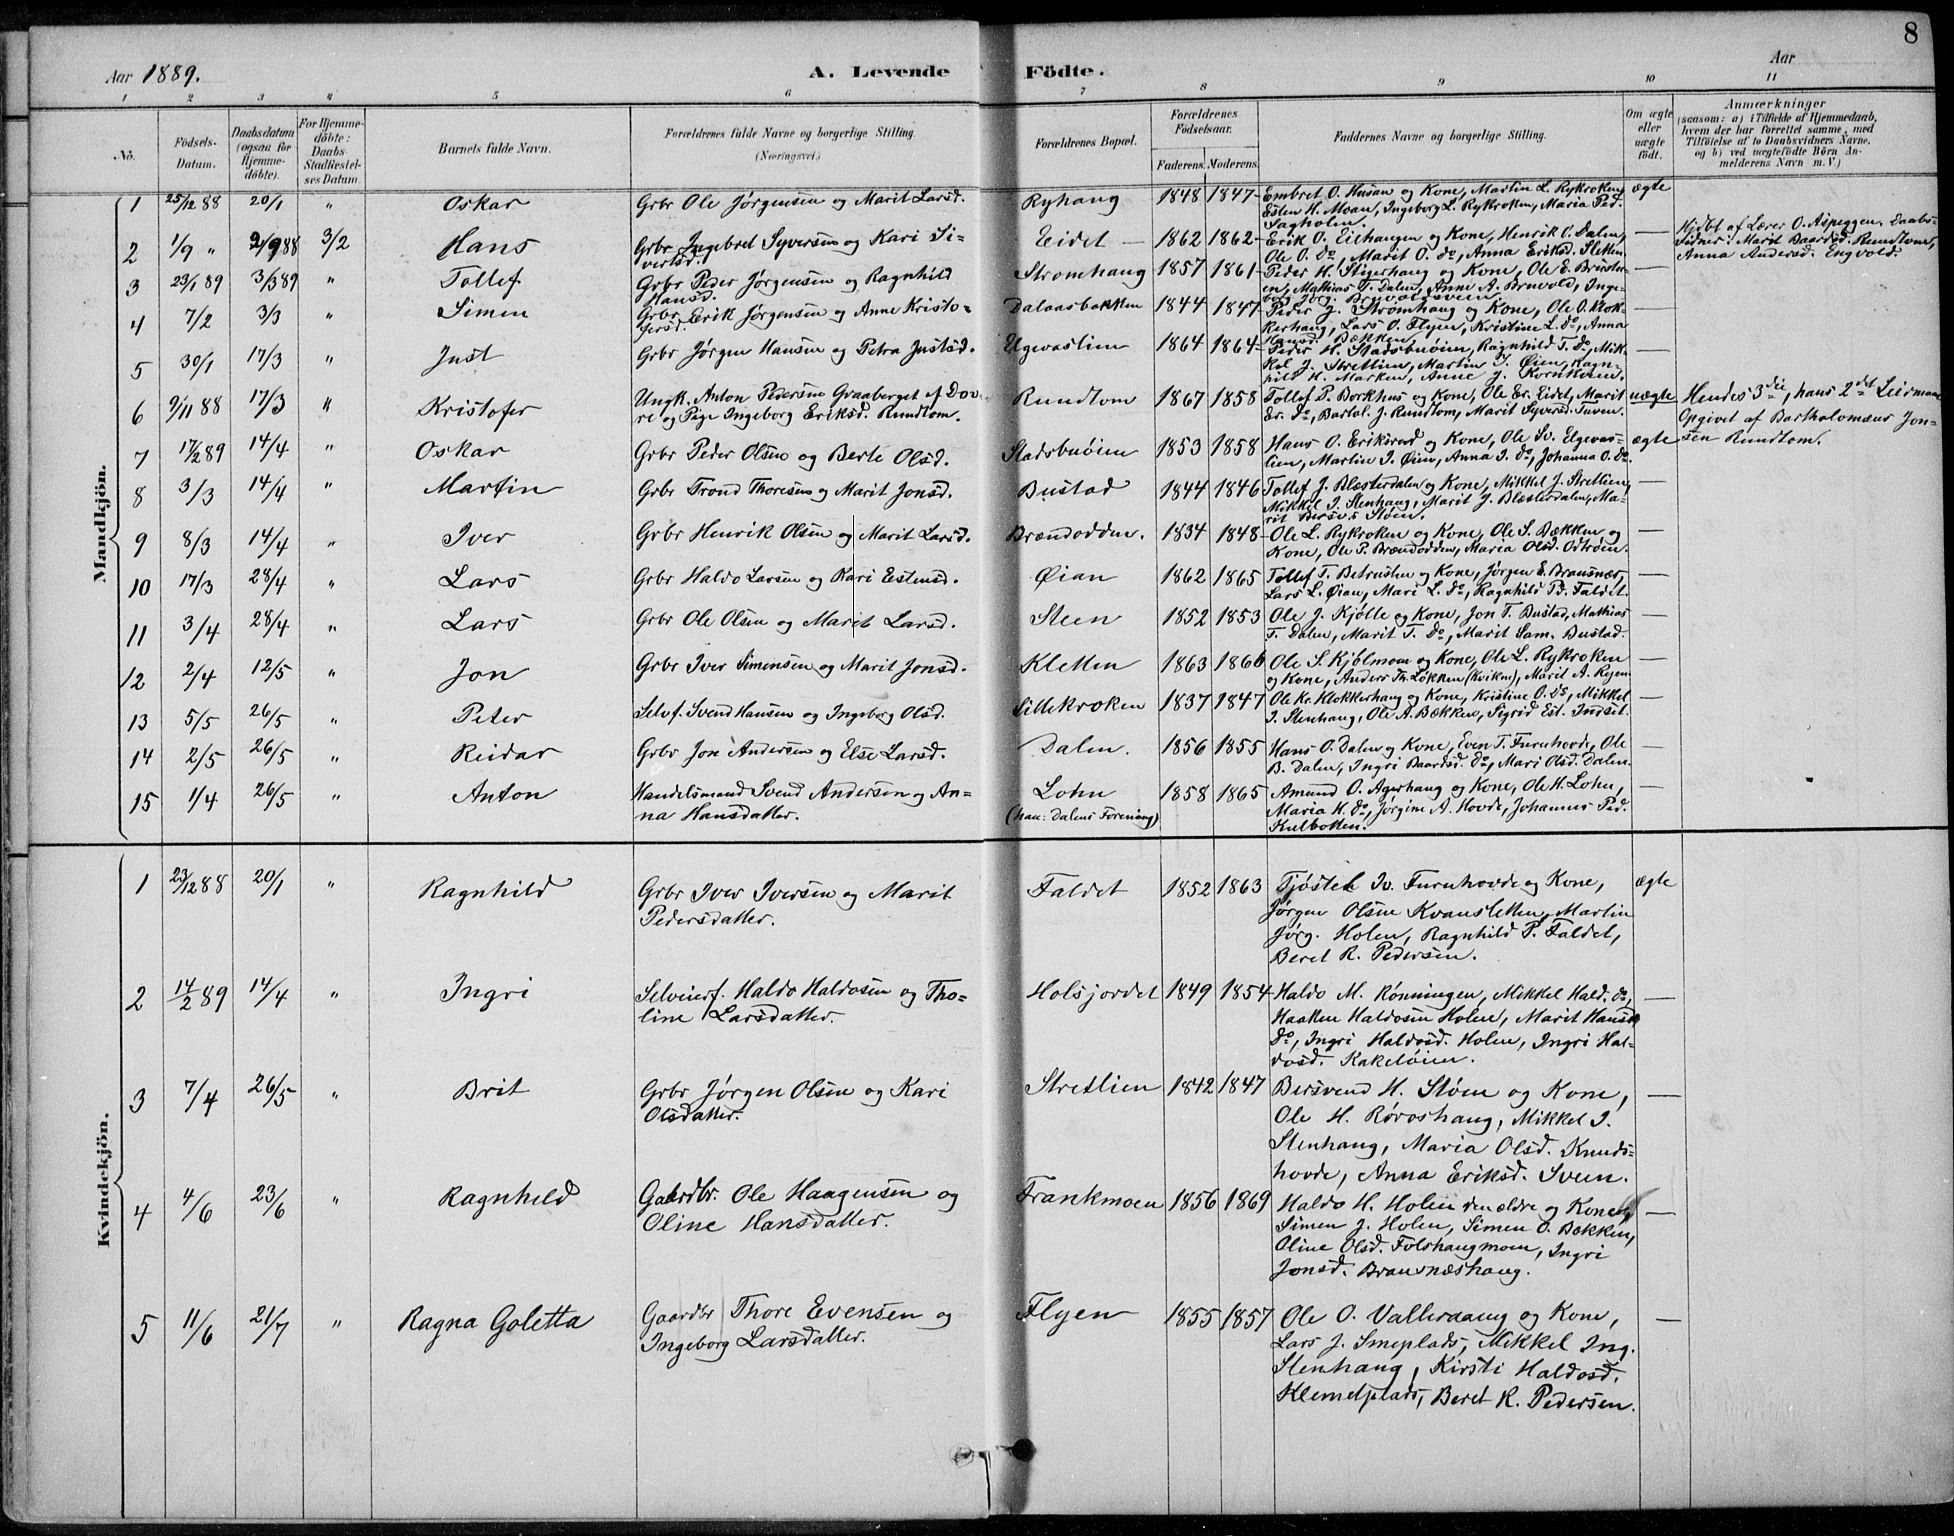 8
Aar 1889.
A. Levende Födte.
Aar
1 2 3 4 5 6 7 8 9 10 11
No.
Födsels-Datum.
Daabsdatum (ogsaa for Hjemmedöbte).
For Hjemmedöbte: Daabs-Stadfæstelses Datum.
Barnets fulde Navn.
Forældrenes fulde Navne og borgerlige Stilling.
(Næringsvei.)
Forældrenes Bopæl.
Forældrenes Födselsaar.
Faderens. Moderens.
Faddernes Navne og borgerlige Stilling.
Om ægte eller uægte födt.
Anmærkninger
(saasom: a) i Tilfælde af Hjemmedaab, hvem der har forrettet samme, med Tilföielse af to Daabsvidners Navne, og b) ved uægtefödte Börn Anmelderens Navn m. V.)
Mandkjön.
1 25/12 88 20/1 " Oskar Grbr Ole Jørgensen og Marit Larsd. Ryhaug 1848 1847 Embret O. Husan og Kone, Martin L. Rykroken, ægte
Esten H. Moan, Ingeborg L. Rykroken, Maria Ped.
Fagholen.
2 1/9 " 2/9 88 3/2 Hans Grbr Ingebret Syversen og Kari Si- Eidet 1862 1862 Erik O. Eidhaugen og Kone, Henrik O. Dalen,
vertsd. Ole O. do, Marit O. do, Anna Eriksd. Sletten.
Hjdbt af Lærer O. Aspeggen. Daabs-
vidner: Marit Baardsd. Rundtom,
Anna Andersd. Engvold.
3 23/1 89 3/3 89 " Tollef Grbr Peder Jørgensen og Ragnhild Strømhaug 1857 1861 Peder H. Stigerhaug og Kone, Ole E.
Hansd. Mathias T. Dalen, Anne A. Bruvold, Inge-
borg Jørg.
4 7/2 3/3 " Simen Grbr Erik Jørgensen og Anne Kristo- Dalaasbakken 1844 1847 Peder J. Strømhaug og Kone, Ole O. Klok-
fersd. kerhaug, Lars O. Flyen, Kristine L. do, Anna
Hansd. Bækken.
5 30/1 17/3 " Just Grbr Jørgen Hansen og Petra Justsd. Elgvaslien 1864 1864 Peder H. Stadsbuøien, Ragnhild T. do, Mik-
kel J. Stretlien, Martin I. Øien, Ragn-
hild H. Marken, Anne J. Kornkveen.
6 9/11 88 17/3 " Kristofer Ungk. Anton Pedersen Graaberget af Dov- Rundtom 1867 1858 Tollef T. Borkhus og Kone, Ole Er. Eidet, Marit uægte
re og Pige Ingeborg Eriksd. Rundtom. Er. do, Bartol. J. Rundtom, Marit Syversd. Tuven.
Hendes 3die, hans 2det Leiermaal
Opgivet af Bartholomæus Jon-
sen Rundtom.
7 17/2 89 14/4 " Oskar Grbr Peder Olsen og Berte Olsd. Stadsbuøien 1853 1858 Hans O. Eriksrud og Kone, Ole Sv. Elgvas- ægte
lien, Martin I. Øien, Anna I. do, Johanna O. do.
8 3/3 14/4 " Martin Grbr Trond Thoresen og Marit Jonsd. Bustad 1844 1846 Tollef J. Blæsterdalen og Kone, Mikkel J. Stretlien,
Mikkel I. Stenhaug, Marit J. Blæsterdalen, Ma-
rit Bersv.s Støen.
9 8/3 14/4 " Iver Grbr Henrik Olsen og Marit Larsd. Brændodden. 1834 1848 Ole L. Rykroken og Kone, Ole S. Bækken og
Kone, Ole P. Brændodden, Maria Olsd. Odtrøen.
10 17/3 28/4 " Lars Grbr Haldo Larsen og Kari Estensd. Øian 1862 1865 Tollef T. Betrusten og Kone, Jørgen E. Brausnæs,
Lars L. Øian, Mari L. do, Ragnhild Pd. Faldet.
11 3/4 28/4 " Lars Grbr Ole Olsen og Marit Larsd. Steen 1852 1853 Ole J. Kjølle og Kone, Jon T. Bustad, Mathias
T. Dalen, Marit T. do, Marit Sam. Bustad.
12 2/4 12/5 " Jon Grbr Iver Simensen og Marit Jonsd. Kletten 1863 1866 Ole S. Kjølmoen og Kone, Ole L. Rykroken
og Kone, Anders Th. Løkken (Kvikne), Marit A. Ryen
13 5/5 26/5 " Peter Selvf. Svend Hansen og Ingeborg Olsd. Lillekroken 1837 1847 Ole Kr. Klokkerhaug og Kone, Kristine O. do, Mikkel
I. Stenhaug, Ole A. Bækken, Sigrid Est. Indset.
14 2/5 26/5 " Reidar Grbr Jon Andersen og Else Larsd. Dalen. 1856 1855 Hans O. Dalen og Kone, Even T. Furuhovde, Ole
B. Dalen, Ingri Baardsd. do, Mari Olsd. Dalen.
15 1/4 26/5 " Anton Handelsmand Svend Andersen og An- Lohn 1858 1865 Amund O. Agerhaug og Kone, Ole H. Lohn,
na Hansdatter. (han: Dalens Forening) Maria H. do, Jørgine A. Hovde, Johannes Ped.
Kulbotten.
Kvindekjön.
1 23/12 88 20/1 " Ragnhild Grbr Iver Iversen og Marit Faldet 1852 1863 Tjøstel Iv. Furuhovde og Kone, ægte
Pedersdatter. Jørgen Olsen Kvansletten, Martin
Jørg. Holen, Ragnhild P. Faldet,
Beret R. Pedersen.
2 14/2 89 14/4 " Ingri Selveierf. Haldo Haldosen og Tho- Holsjordet 1849 1854 Haldo M. Rønningen, Mikkel Hald. do,
line Larsdatter. Haaken Haldosen Holen, Marit Hansd.
do, Ingri Haldosd. Holen, Ingri Hal-
dosd. Rakeløien.
3 7/4 26/5 " Brit Grbr Jørgen Olsen og Kari Stretlien 1842 1847 Bersvend H. Støen og Kone,
Olsdatter. Ole H. Røroshaug, Mikkel I.
Stenhaug, Maria Olsd. Knuds-
hovde, Anna Eriksd. Sveen.
4 4/6 23/6 " Ragnhild Gaardbr. Ole Haagensen og Frankmoen 1856 1869 Haldo H. Holen den ældre og Kone,
Oline Hansdatter. Simen J. Holen, Simen O. Bækken,
Oline Olsd. Folshaugmoen, Ingri
Jonsd. Brausnæshaug.
5 11/6 21/7 " Ragna Goletta Gaardbr Thore Evensen og Flyen 1855 1857 Ole O. Valleraaeng og Kone,
Ingeborg Larsdatter. Lars J. Smeplads, Mikkel Ing.
Stenhaug, Kirsti Haldosd.
Klemetplads, Beret R. Pedersen.